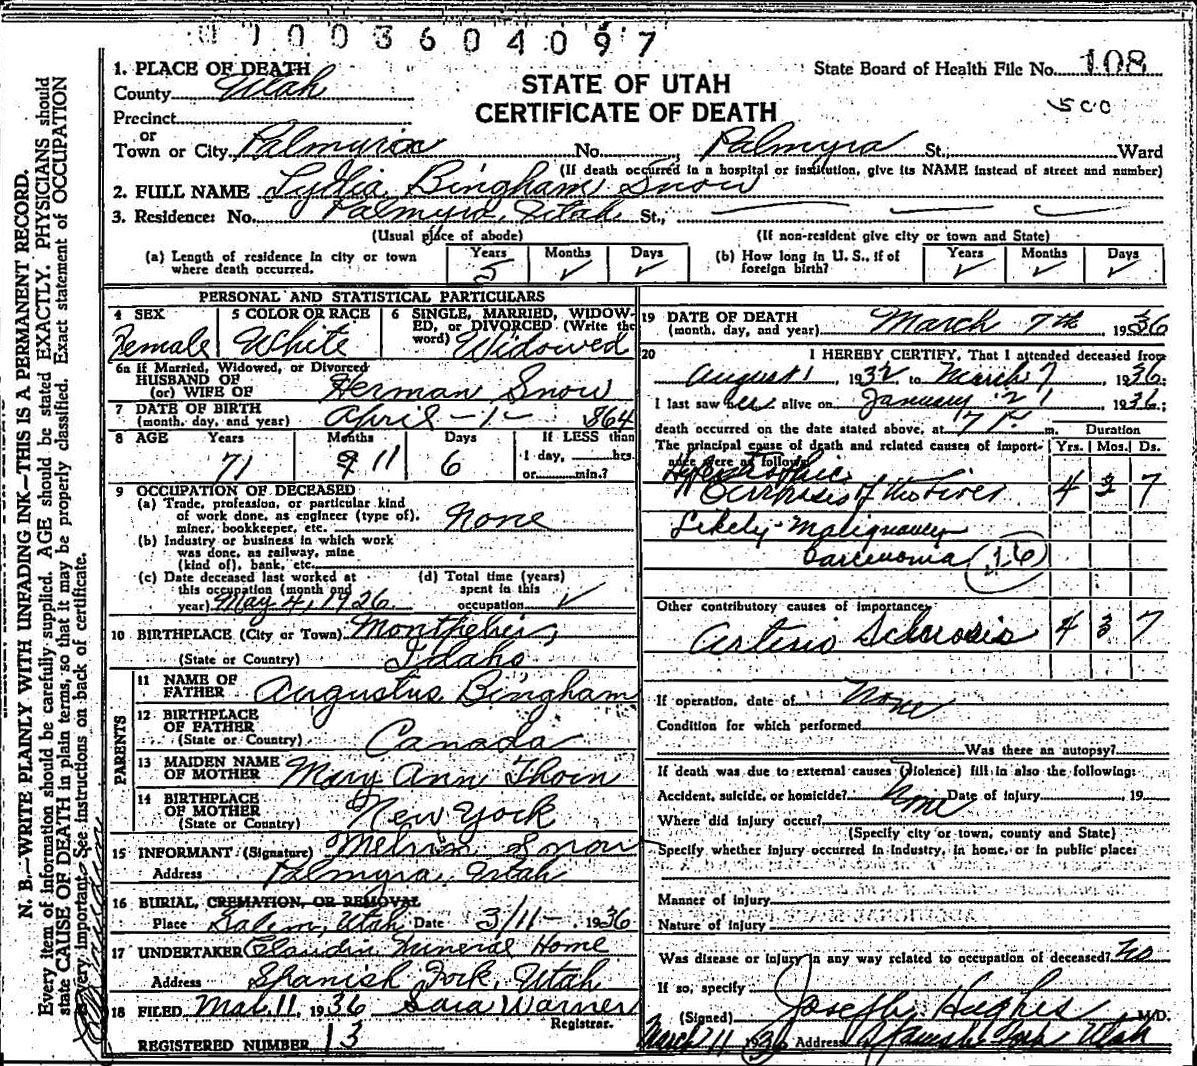 01003604097
1. PLACE OF DEATH
County Utah
STATE OF UTAH
CERTIFICATE OF DEATH
State Board of Health File No. 108
500
Precinct
or
Town or City Palmyra No. Palmyra St., Ward
(If death occurred in a hospital or institution, give its NAME instead of street and number)
2. FULL NAME Lydia Bingham Snow
3. Residence: No. Palmyra, Utah St.,
(Usual place of abode) (If non-resident give city or town and State)
(a) Length of residence in city or town where death occurred. Years 5 Months ✓ Days ✓
(b) How long in U. S., if of foreign birth? Years ✓ Months ✓ Days ✓
PERSONAL AND STATISTICAL PARTICULARS
4 SEX Female
5 COLOR OR RACE White
6 SINGLE, MARRIED, WIDOWED, or DIVORCED (Write the word) Widowed
6a If Married, Widowed, or Divorced
HUSBAND OF
(or) WIFE OF Herman Snow
7 DATE OF BIRTH
(month, day, and year) April - 1 - 1864
8 AGE Years 71 Months 11 Days 6
If LESS than
1 day, hrs.
or min.?
9 OCCUPATION OF DECEASED
(a) Trade, profession, or particular kind
of work done, as engineer (type of),
miner, bookkeeper, etc. None
(b) Industry or business in which work
was done, as railway, mine
(kind of), bank, etc.
(c) Date deceased last worked at
this occupation (month and
year) May 4, 1926
(d) Total time (years)
spent in this
occupation ✓
10 BIRTHPLACE (City or Town) Montpelier,
(State or Country) Idaho
PARENTS
11 NAME OF
FATHER Augustus Bingham
12 BIRTHPLACE
OF FATHER
(State or Country) Canada
13 MAIDEN NAME
OF MOTHER Mary Ann Thorn
14 BIRTHPLACE
OF MOTHER
(State or Country) New York
15 INFORMANT (Signature) Melvin Snow
Address Palmyra, Utah
16 BURIAL, CREMATION, OR REMOVAL
Place Salem, Utah Date 3/11 - 1936
17 UNDERTAKER Claudin Funeral Home
Address Spanish Fork, Utah
18 FILED Mar. 11 1936 Sara Warner
Registrar.
REGISTERED NUMBER 13
19 DATE OF DEATH
(month, day, and year) March 7th 1936
20 I HEREBY CERTIFY, That I attended deceased from
August 1, 1932, to March 7 1936;
I last saw her alive on January 21 1936;
death occurred on the date stated above, at 7 P. m. Duration
The principal cause of death and related causes of importance were as follows: Yrs. Mos. Ds.
Hypertrophic
Cirrhosis of the Liver 4 3 7
Likely - Malignancy
Carcinoma (46)
Other contributory causes of importance:
Arterio Sclerosis 4 3 7
If operation, date of None
Condition for which performed
Was there an autopsy?
If death was due to external causes (violence) fill in also the following:
Accident, suicide, or homicide? None Date of injury 19
Where did injury occur?
(Specify city or town, county and State)
Specify whether injury occurred in industry, in home, or in public place:
Manner of injury
Nature of injury
Was disease or injury in any way related to occupation of deceased? No
If so, specify
(Signed) Joseph Hughes M.D.
March 11 1936 Address Spanish Fork Utah
N. B.—WRITE PLAINLY WITH UNFADING INK—THIS IS A PERMANENT RECORD.
Every item of information should be carefully supplied. AGE should be stated EXACTLY. PHYSICIANS should
state CAUSE OF DEATH in plain terms, so that it may be properly classified. Exact statement of OCCUPATION
very important. See instructions on back of certificate.